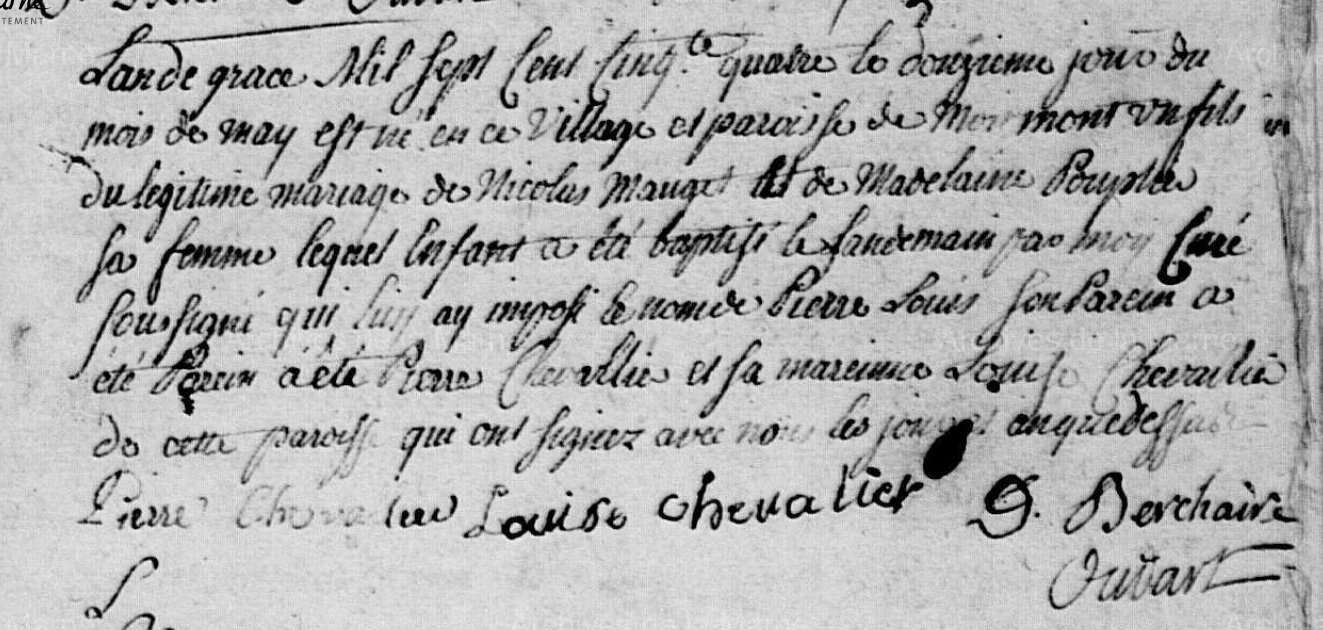 L'an de grace Mil sept Cent Cinq.te quatre le douzieme jour du
mois de may est né en ce Village et paroisse de Mormont un fils
du legitime mariage de Nicolas Mauget et de Madelaine
sa femme lequel Enfant a été baptisé le landemain par moy Curé
soussigné qui luy ay imposé le nom de Pierre Louis son Parein a
été Parein a été Pierre Chevallier et sa mareinne Louise Chevallier
de cette paroisse qui ont signez avec nous les jour et an que dessus
Pierre Chevalier Louise Chevalier D. Berchaire
Oudart